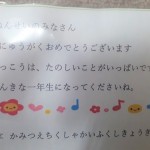 んせいのみなさん
にゅうがくおめでとうございます
っこうは、たのしいことがいっぱいで
んきな一年生になってくださいね。
かみつえちくしゃかいふくしきょうぎ